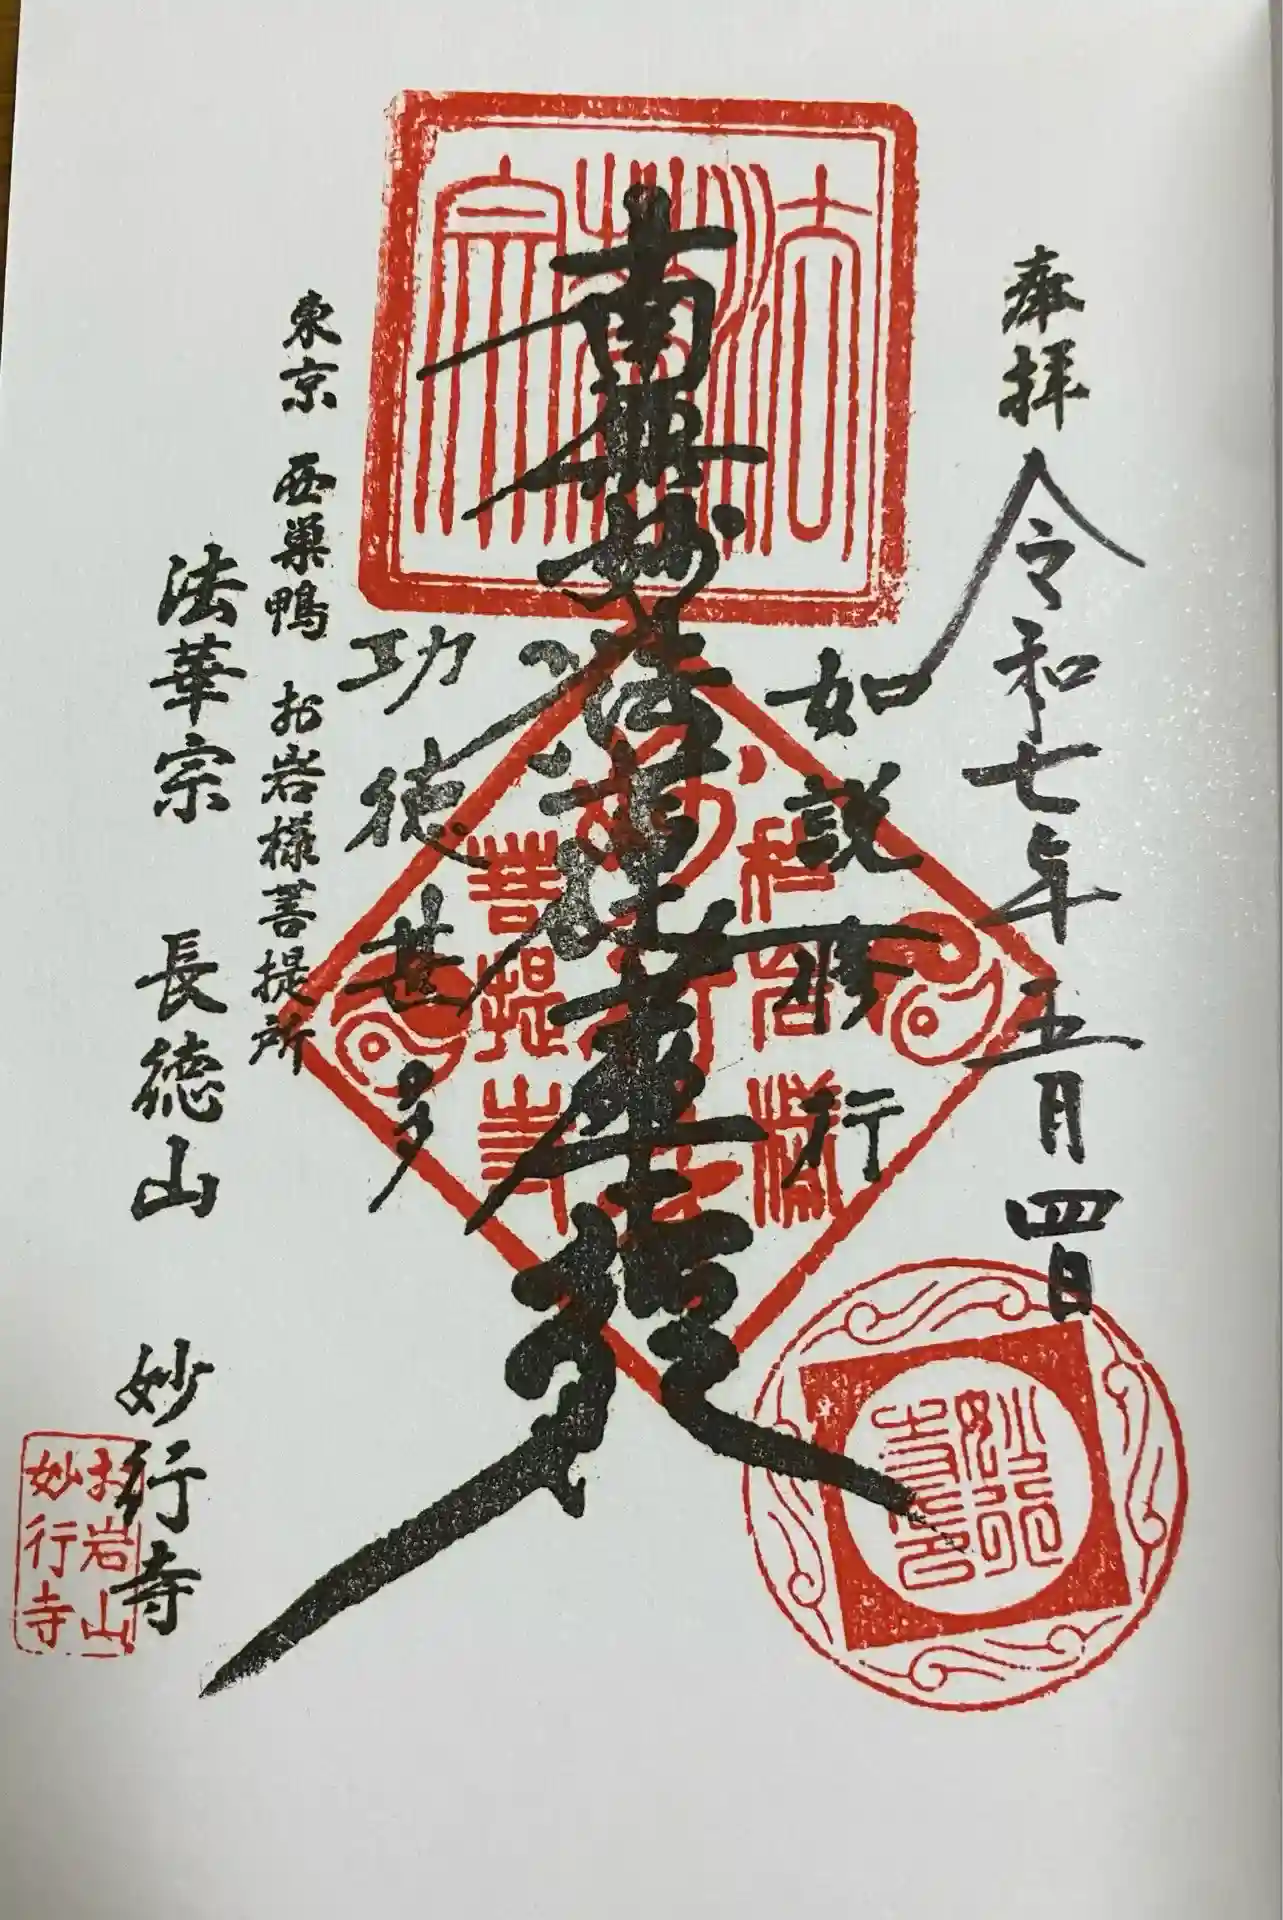 奉拝 令和七年五月四日
如説修行
南無妙法蓮華経
功徳甚多
東京 西巣鴨 お岩様菩提所
法華宗 長徳山 妙行寺
法華宗
菩提寺
妙行寺印
お岩山
妙行寺